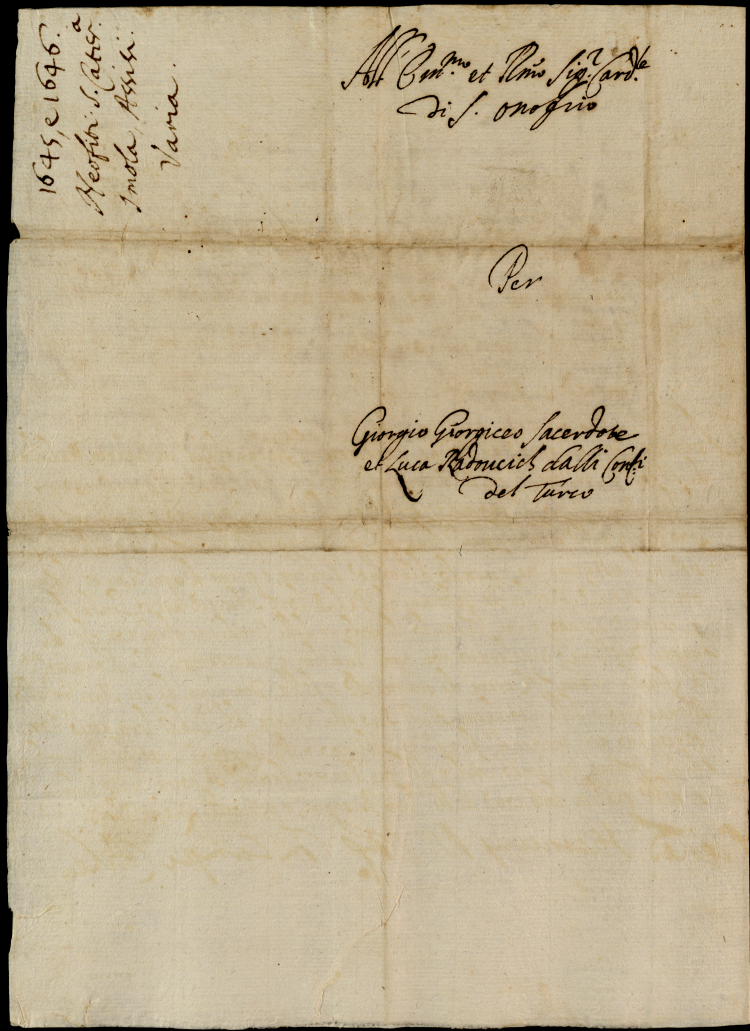 1645, e 1646.
Neofiti. S. Catic.a
Imola, Assisi.
Varia.
All' Em.mo et Rmo Sig.r Card.le
di S. onofrio
Per
Giorgio Giorgiceo Sacerdote
et Luca Radoucich dalli Conf.i
del Turco